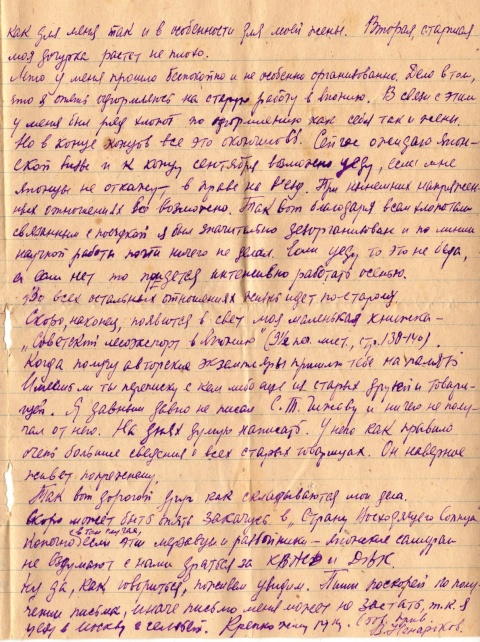 как для меня так и в особенности для моей жены. Вторая, старшая
моя дочурка растет не плохо.
Лето у меня прошло беспокойно и не особенно организованно. Дело в том,
что я опять оформляюсь на старую работу в Японию. В связи с этим
у меня был ряд хлопот по оформлению как себя так и жены.
Но в конце концов все это окончилось. Сейчас ожидаю япон-
ской визы и к концу сентября возможно уеду, если мне
японцы не откажут в праве на в'езд. При нынешних напряжен-
ных отношениях все возможно. Так вот благодаря всем хлопотам
связанным с поездкой я был значительно дезорганизован и по линии
научной работы почти ничего не делал. Если уеду, то это не беда,
а если нет то придется интенсивно работать осенью.
Во всех остальных отношениях жизнь идет по-старому
Скоро, наконец, появится в свет моя маленькая книжка -
"Советский лесоэкспорт в Японию" ( печ. лист., стр. 130-140).
Когда получу авторские экземпляры пришлю тебе на память
Имеешь ли ты переписку с кем либо еще из старых друзей и товари-
щей. Я давным давно не писал С.Т. Чижову и ничего не полу-
чал от него. На днях думаю написать. У него как правило
очень большие сведения о всех старых товарищах. Он наверное
живет попрежнему.
Так вот дорогой друг как складываются мои дела.
Скоро может быть опять закачусь в "Страну Восходящего Солнца
в том случае,
конечно если эти мерзавцы и разбойники - японские самураи
не вздумают с нами драться за КВЖД и ДВК
Ну да, как говориться, поживем увидим. Пиши поскорей по полу-
чении письма, иначе письмо меня может не застать, т.к. я
уеду в Москву с семьей. Крепко жму руку. прив.